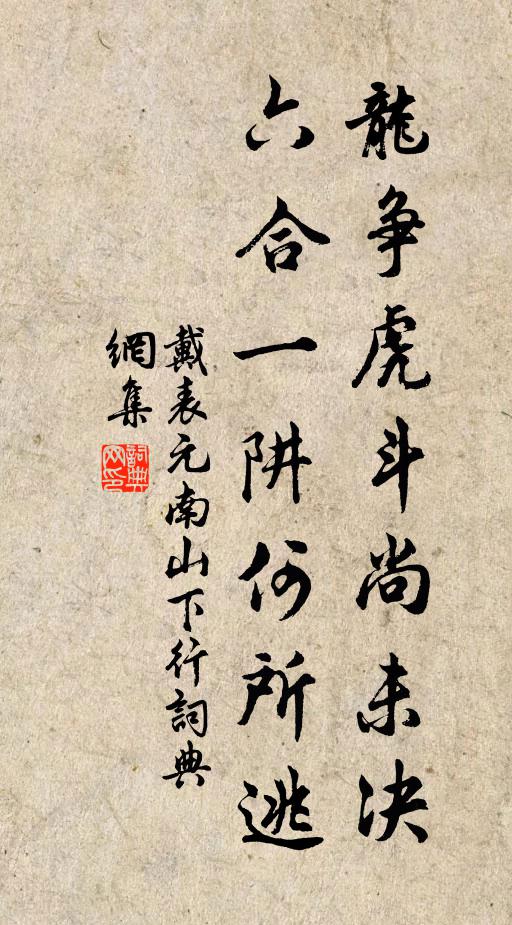 龍争虎斗尚未决
六合一阱何所逃
戴表元南山下行詞典
網集
詞典
网印